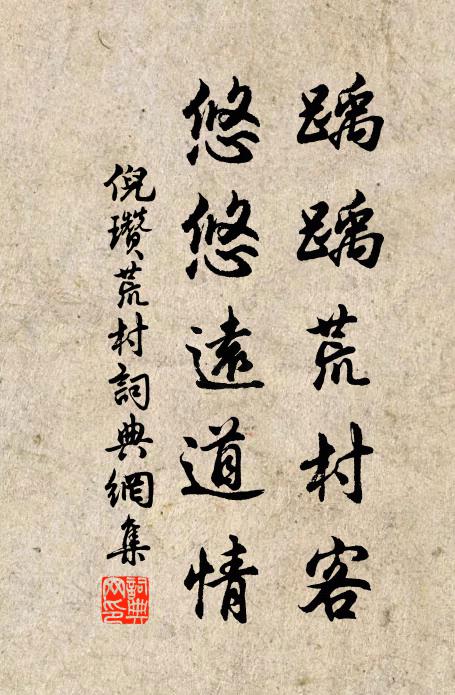 踽踽荒村客
悠悠遠道情
倪瓚荒村詞典網集
詞典網印